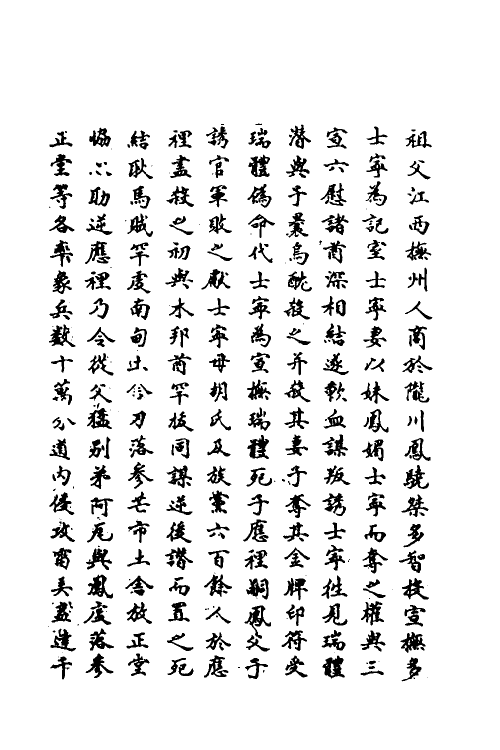 祖父江西撫州人商於隴川鳳驍桀多智按宣撫多
士寧為記室士寧妻以妹鳳媚士寧而奪之權與三
宣六慰諸酋深相結遂歃血謀叛誘士寧往見瑞體
潛與子曩烏酖殺之并殺其妻子奪其金牌印符受
瑞體偽命代士寧為宣撫瑞體死子應裡嗣鳳父子
誘官軍敗之獻士寧母胡氏及族黨六百餘人於應
裡盡殺之初與木邦酋罕拔同謀逆後譖而置之死
結耿馬賊罕虔南甸土舍刀落參芒市土舍放正堂
惱以助逆應裡乃令從父猛別弟阿瓦與鳳虔落參
正堂等各率象兵數十萬分道內侵攻雷弄盞達干